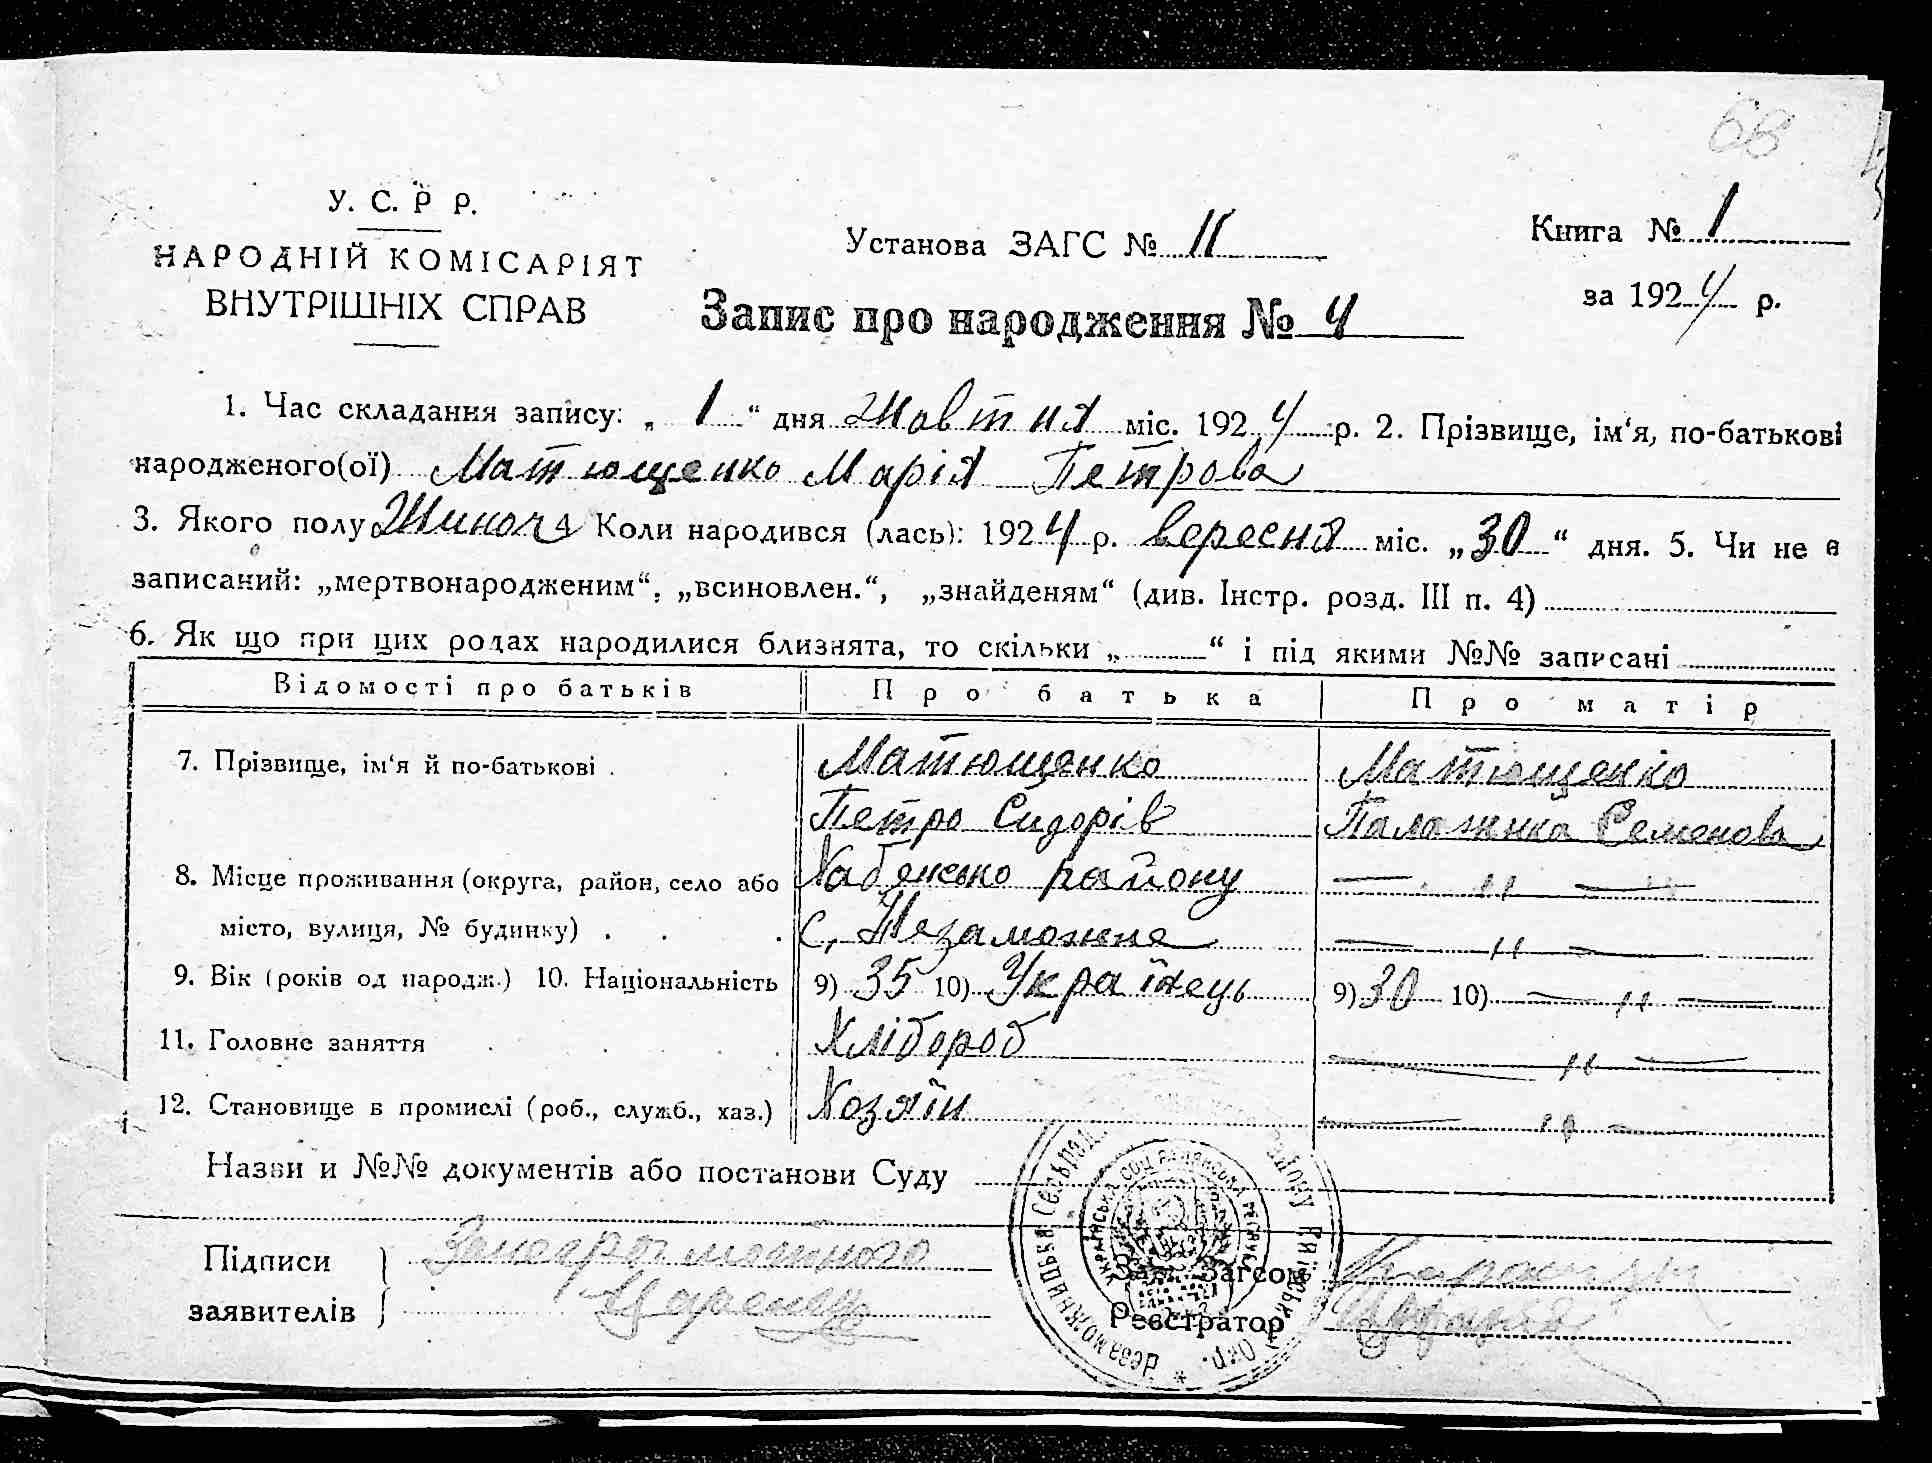 68
У. С. Р Р.
НАРОДНІЙ КОМІСАРІЯТ
ВНУТРІШНІХ СПРАВ
Установа ЗАГС № 11
Книга № 1
за 1924 р.
Запис про народження № 4
1. Час складання запису: „ 1 “ дня Жовтня міс. 1924 р. 2. Прізвище, ім‘я, по-батькові
народженого(ої) Матющенко Марія Петрова
3. Якого полу Жиноча Коли народився (лась): 1924 р. вересня міс. „30“ дня. 5. Чи не є
записаний: „мертвонародженим“, „всиновлен.“, „знайденям“ (див. Інстр. розд. III п. 4)
6. Як що при цих родах народилися близнята, то скільки „ “ і під якими №№ записані
Відомості про батьків Про батька Про матір
7. Прізвище, ім‘я й по-батькові . Матющенко Матющенко
Петро Сидорів Палажка Семенова
8. Місце проживання (округа, район, село або Хабенсько району — „ —
місто, вулиця, № будинку) . . . С. Незаможне — „ —
9. Вік (років од народж.) 10. Національність 9) 35 10) Українець 9) 30 10) — „ —
11. Головне заняття Хлібороб — „ —
12. Становище в промислі (роб., служб., хаз.) Хозяїн — „ —
Назви и №№ документів або постанови Суду
Підписи
заявителів
Зав. Загсом
Реєстратор
УКРАЇНСЬКА СОЦ. РАДЯНСЬКА РЕСПУБ
Незаможницька Сельрада району Київської Окр.